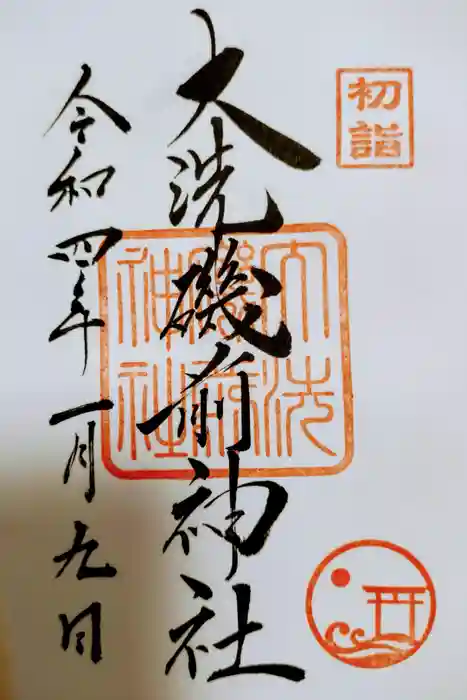 初詣
大洗磯前神社
大洗
磯前
神社
令和四年一月九日